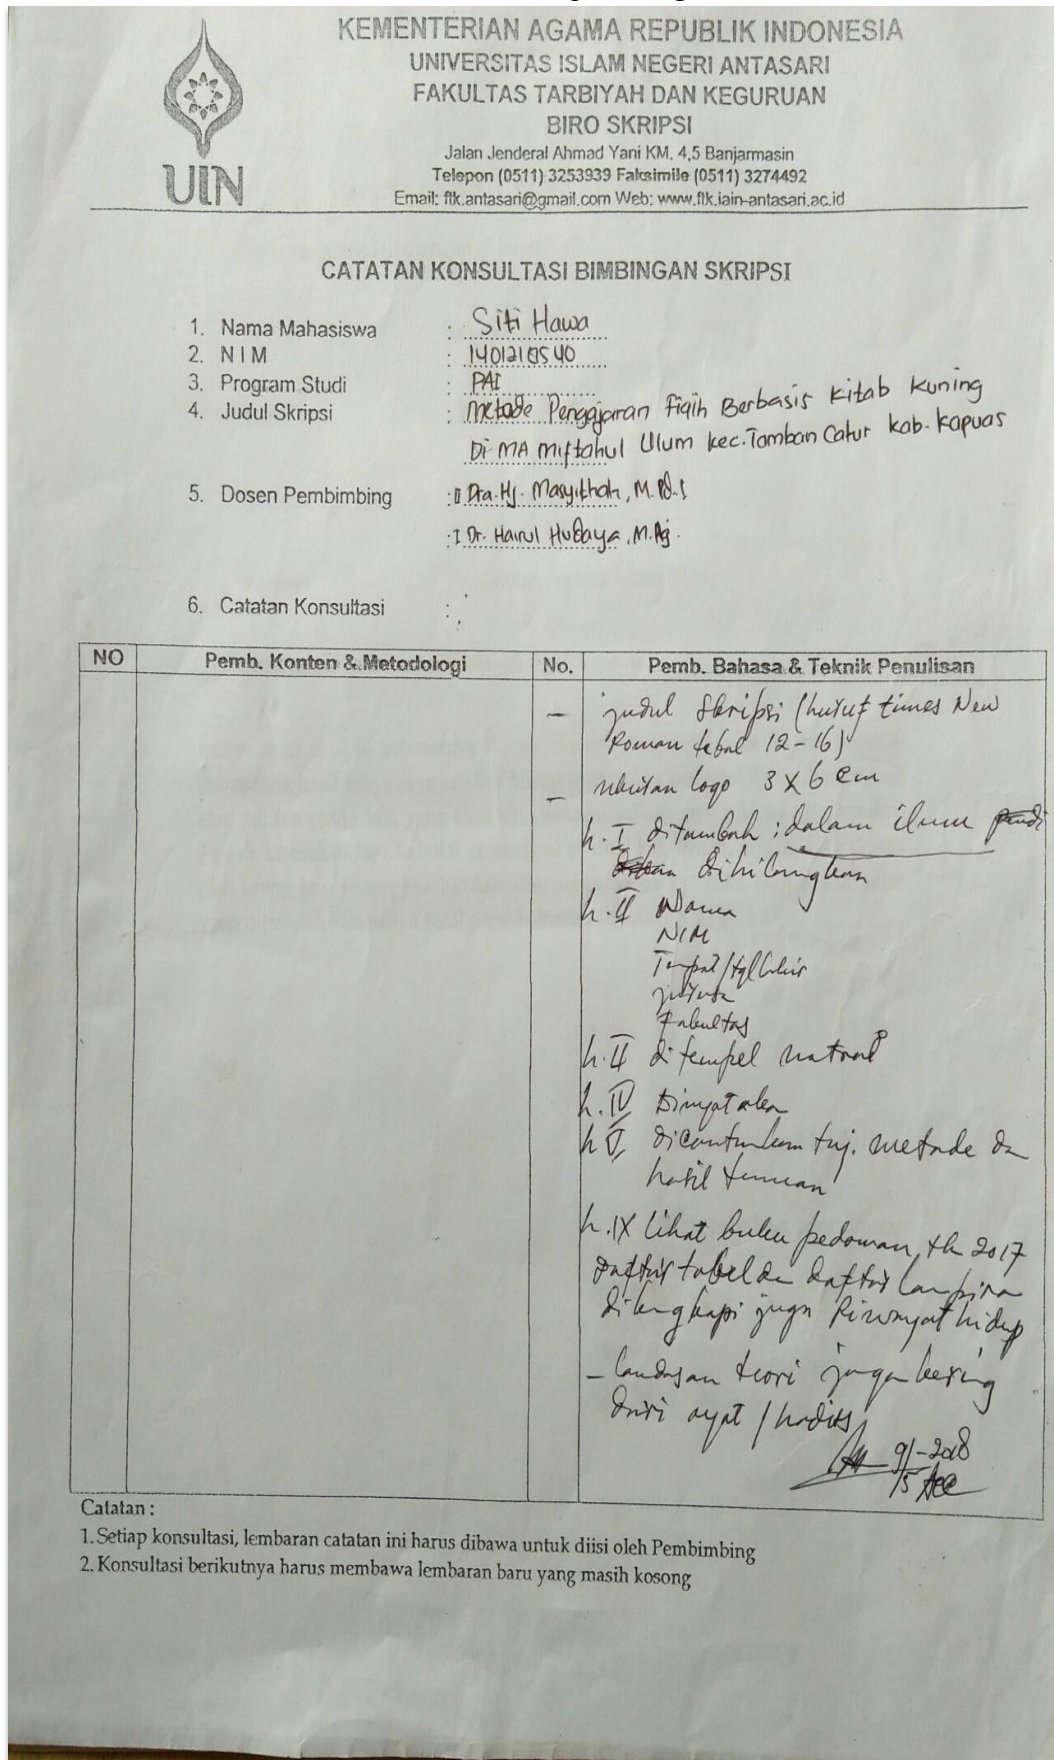 KEMENTERIAN AGAMA REPUBLIK INDONESIA
UNIVERSITAS ISLAM NEGERI ANTASARI
FAKULTAS TARBIYAH DAN KEGURUAN
BIRO SKRIPSI
Jalan Jenderal Ahmad Yani KM. 4,5 Banjarmasin
Telepon (0511) 3253939 Faksimile (0511) 3274492
Email: ftk.antasari@gmail.com Web: www.ftk.iain-antasari.ac.id
UIN
CATATAN KONSULTASI BIMBINGAN SKRIPSI
1. Nama Mahasiswa : Siti Hawa
2. N I M : 1401210540
3. Program Studi : PAI
4. Judul Skripsi : Metode Pengajaran Fiqih Berbasis Kitab Kuning
Di MA Miftahul Ulum Kec. Tamban Catur Kab. Kapuas
5. Dosen Pembimbing : II Dra. Hj. Masyithah, M.Pd.I
: I Dr. Hairul Hudaya, M.Ag.
6. Catatan Konsultasi :
NO Pemb. Konten & Metodologi No. Pemb. Bahasa & Teknik Penulisan
– judul skripsi (huruf times New
Roman tebal 12-16)
– ukuran logo 3 X 6 cm
h. I ditambah : dalam ilmu
dihilangkan
h. II Nama
NIM
Tempat/tgl lahir
jurusan
Fakultas
h. II ditempel
h. IV Dinyatakan
h V, dicantumkan tuj. metode dan
hasil temuan
h. IX lihat buku pedoman th 2017
daftar tabel dan daftar lampiran
dilengkapi juga Riwayat hidup
– landasan teori jangan kering
dari ayat / hadits
9/5-2018
Acc
Catatan :
1. Setiap konsultasi, lembaran catatan ini harus dibawa untuk diisi oleh Pembimbing
2. Konsultasi berikutnya harus membawa lembaran baru yang masih kosong